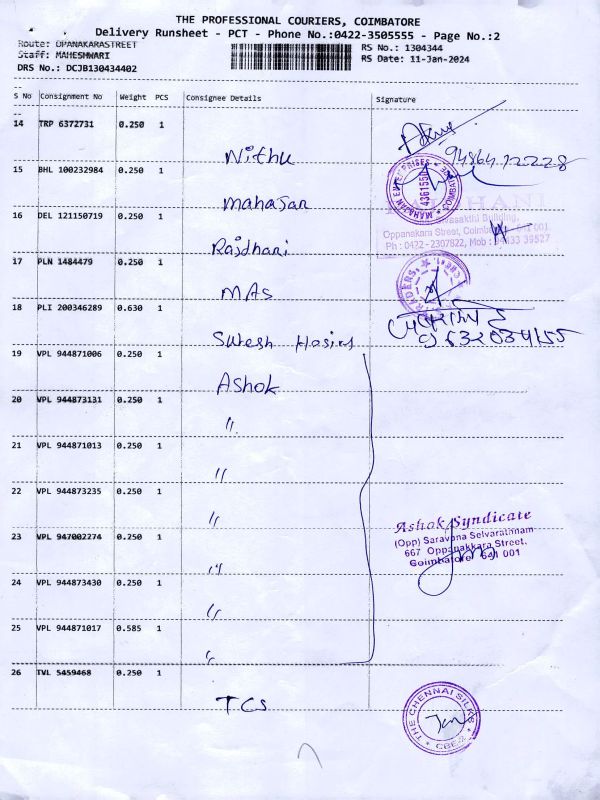 THE PROFESSIONAL COURIERS, COIMBATORE
Delivery Runsheet - PCT - Phone No.:0422-3505555 - Page No.:2
Route: OPANAKARASTREET
Staff: MAHESHWARI
DRS No.: DCJB130434402
RS No.: 1304344
RS Date: 11-Jan-2024
S No Consignment No Weight PCS Consignee Details Signature
14 TRP 6372731 0.250 1
Nithu
15 BHL 100232984 0.250 1
Mahasan
MAHAJAN ENTERPRISES
4361550
16 DEL 121150719 0.250 1
Rajdhani
Oppanakara Street, Coimbatore 641 001
Ph : 0422 - 2307822, Mob :
17 PLN 1484479 0.250 1
MAS
18 PLI 200346289 0.630 1
Suresh
19 VPL 944871006 0.250 1
Ashok
20 VPL 944873131 0.250 1
"
21 VPL 944871013 0.250 1
"
22 VPL 944873235 0.250 1
"
23 VPL 947002274 0.250 1
"
Ashok Syndicate
(Opp) Saravana Selvarathnam
667 Oppanakkara Street,
Coimbatore 641 001
24 VPL 944873430 0.250 1
"
25 VPL 944871017 0.585 1
"
26 TVL 5459468 0.250 1
TCS
THE CHENNAI SILKS
CBE-2